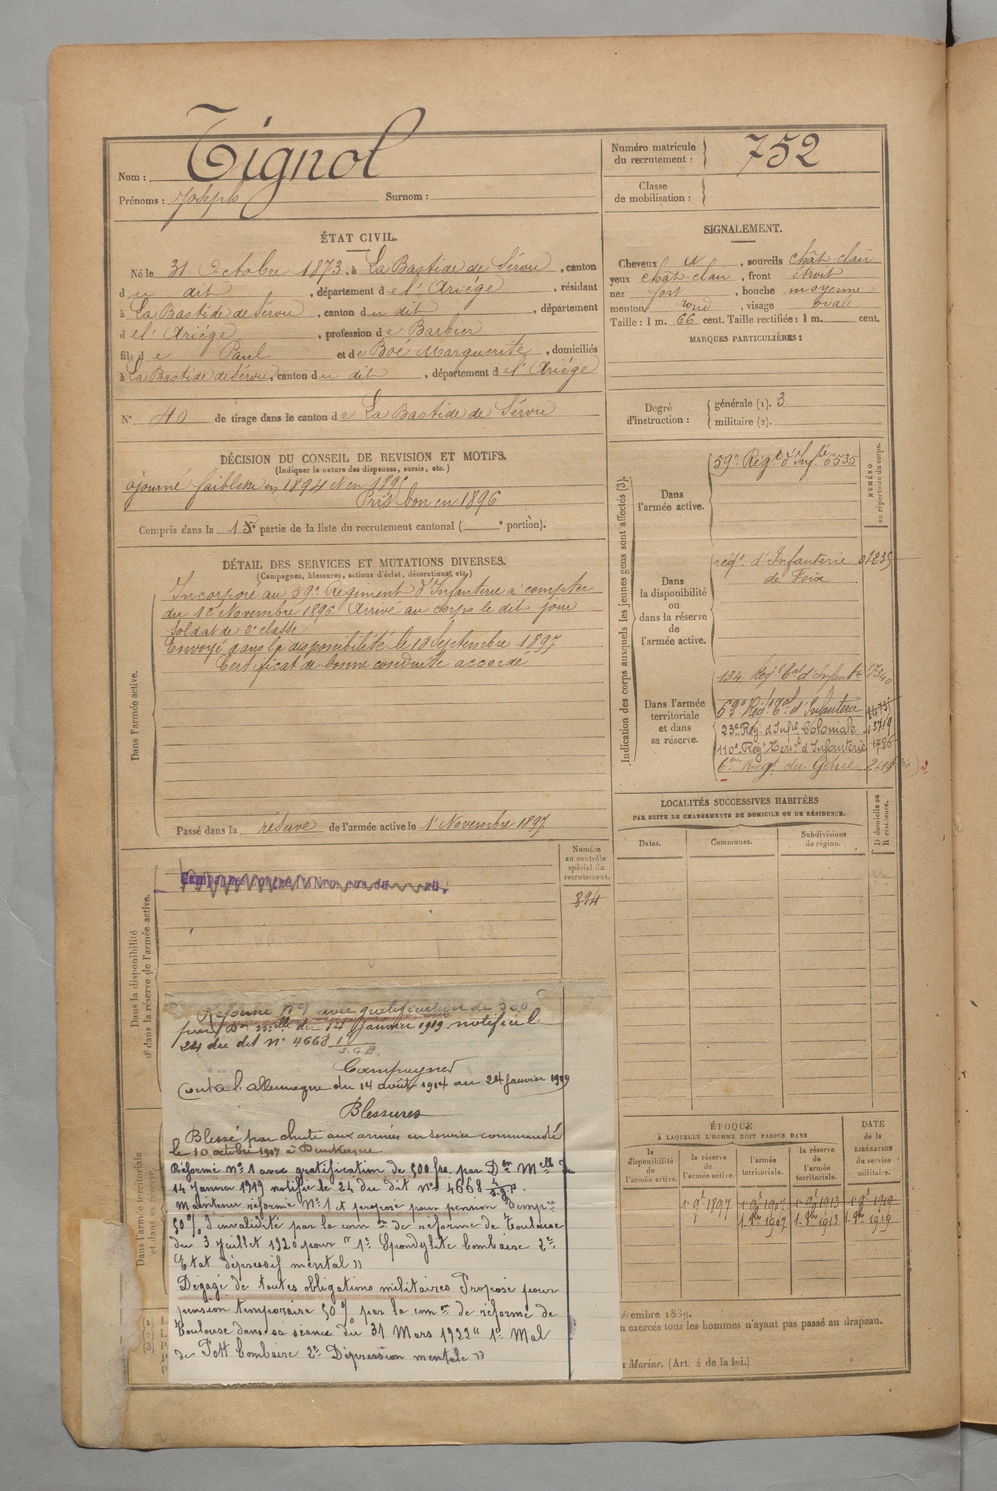 Nom : Tignol
Prénoms : Joseph Surnom :
Numéro matricule
du recrutement : 752
Classe
de mobilisation :
ÉTAT CIVIL.
Né le 31 Octobre 1873, à La Bastide de Sérou, canton
du dit, département de l'Ariége, résidant
à La Bastide de Sérou, canton du dit, département
de l'Ariége, profession de Barbier
fils de Paul et de Boé Marguerite, domiciliés
à La Bastide de Sérou, canton du dit, département de l'Ariége
N° 40 de tirage dans le canton de La Bastide de Sérou
SIGNALEMENT.
Cheveux , sourcils chât clair
yeux chât-clair, front étroit
nez fort, bouche moyenne
menton rond, visage ovale
Taille : 1 m. 66 cent. Taille rectifiée : 1 m. cent.
MARQUES PARTICULIÈRES :
Degré
d'instruction :
générale (1). 3
militaire (2).
DÉCISION DU CONSEIL DE REVISION ET MOTIFS.
(Indiquer la nature des dispenses, sursis, etc.)
ajourné faiblesse en 1894 et en 1895
Pris bon en 1896
Compris dans la partie de la liste du recrutement cantonal ( e portion).
DÉTAIL DES SERVICES ET MUTATIONS DIVERSES.
(Campagnes, blessures, actions d'éclat, décorations, etc.)
Dans l'armée active.
Incorporé au 59e Régiment d'Infanterie à compter
du Novembre 1896. Arrivé au corps le dit jour
Soldat de 2e classe
Envoyé dans la disponibilité le 18 Septembre 1897
Certificat de bonne conduite accordé
Passé dans la réserve de l'armée active le 1er Novembre 1897
Indication des corps auxquels les jeunes gens sont affectés (3).
NUMÉRO
au répertoire du corps.
Dans
l'armée active.
59e Régt d'Infie 6535
Dans
la disponibilité
ou
dans la réserve
de
l'armée active.
régt d'Infanterie 01235
de Foix
Dans l'armée
territoriale
et dans
sa réserve.
134 Régt Tal d'Infant
Régt Tal d'Infanterie
23e Rég. d'Infie Coloniale 13719
110e Régt Territ d'Infanterie 1786
6em Régt du Génie
LOCALITÉS SUCCESSIVES HABITÉES
PAR SUITE DE CHANGEMENTS DE DOMICILE OU DE RÉSIDENCE.
Dates. Communes. Subdivisions
de région.
D domicile ou
R résidence.
Numéro
au contrôle
spécial du
recrutement.
894
Dans la disponibilité
et dans la réserve de l'armée active.
Réforme N°1 avec gratification de 500
par Don mlle du 14 Janvier 1919 notifié le
24 du dit n° 4668
Campagnes
Contre l'allemagne du 14 août 1914 au 24 janvier 1919
Blessures
Blessé par chute aux armées en service commandé
le 10 octobre 1917 à Dunkerque
Réformé N°1 avec gratification de 500 frs. par Don Melle du
14 Janvier 1919 notifiée le 24 du dit N° 4668
Maintenu réformé N°1 et proposé pour pension tempre
50% d'invalidité par la com on de réforme de Toulouse
du 3 juillet 1920 pour "1° Spondylite lombaire 2°
Etat dépressif mental"
Dégagé de toutes obligations militaires Proposé pour
pension temporaire 50% par la comon de réforme de
Toulouse dans sa séance du 31 Mars 1922 "1° Mal
de Pott lombaire 2° Dépression mentale"
Dans l'armée territoriale
et dans sa réserve.
ÉPOQUE
À LAQUELLE L'HOMME DOIT PASSER DANS
la
disponibilité
de
l'armée active.
la réserve
de
l'armée active.
l'armée
territoriale.
la réserve
de
l'armée
territoriale.
DATE
de la
LIBÉRATION
du service
militaire.
1er 9bre 1897 1er 9bre 1907 1er 9bre 1913 1er 9bre 1919
1907 1913 1919
décembre 1889.
exercés tous les hommes n'ayant pas passé au drapeau.
Marine. (Art. 4 de la loi.)